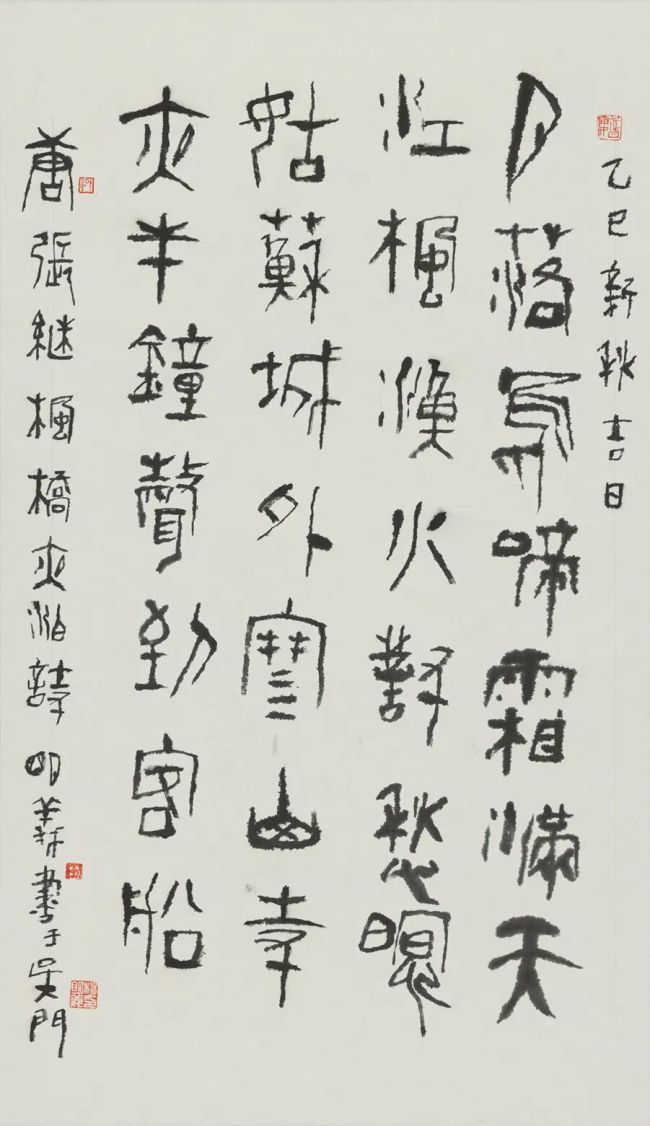 乙巳新秋吉日
月落烏啼霜滿天
江楓漁火對愁瞑
姑蘇城外寒山寺
夜半鐘聲到客船
唐張繼楓橋夜泊詩 明義書于吳門